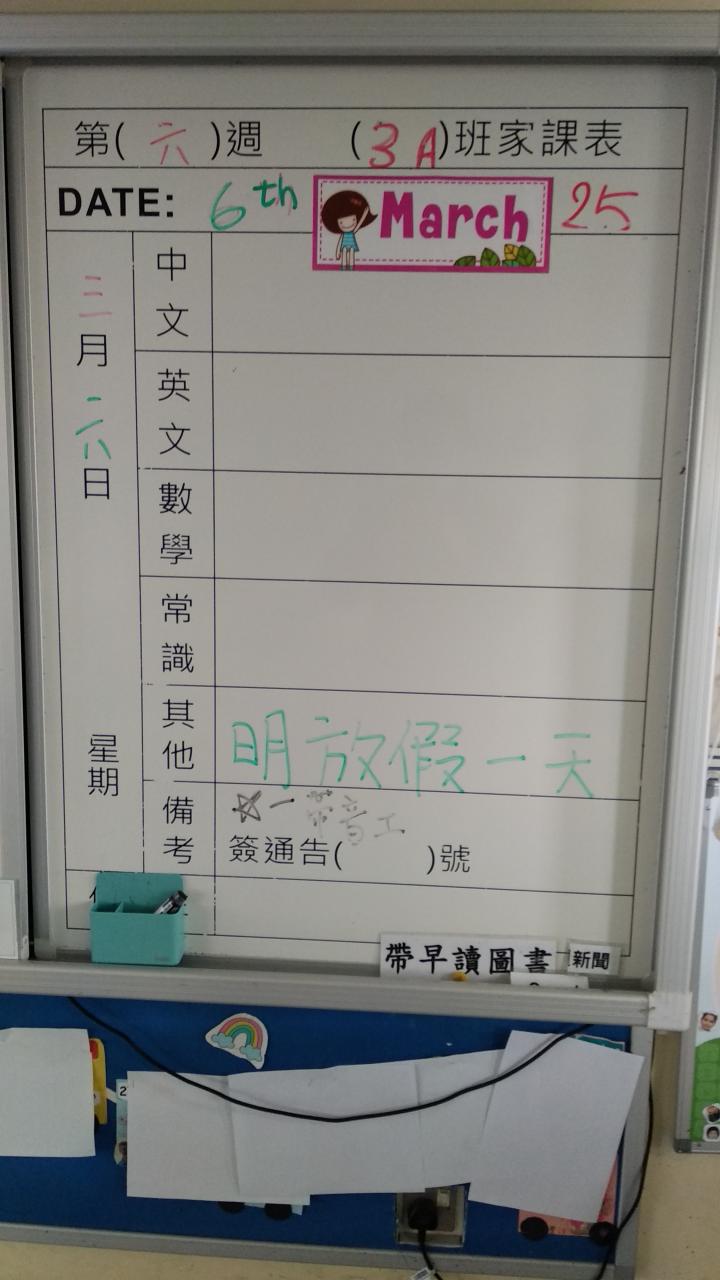 第(六)週 (3A)班家課表
DATE: 6th March 25
三月六日
星期
中文
英文
數學
常識
其他
明放假一天
備考
簽通告( )號
帶早讀圖書
新聞